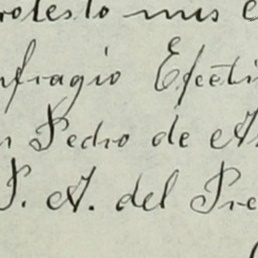 rotesto mis e
ufragio Efecti
n Pedro de A
P. A. del Pre